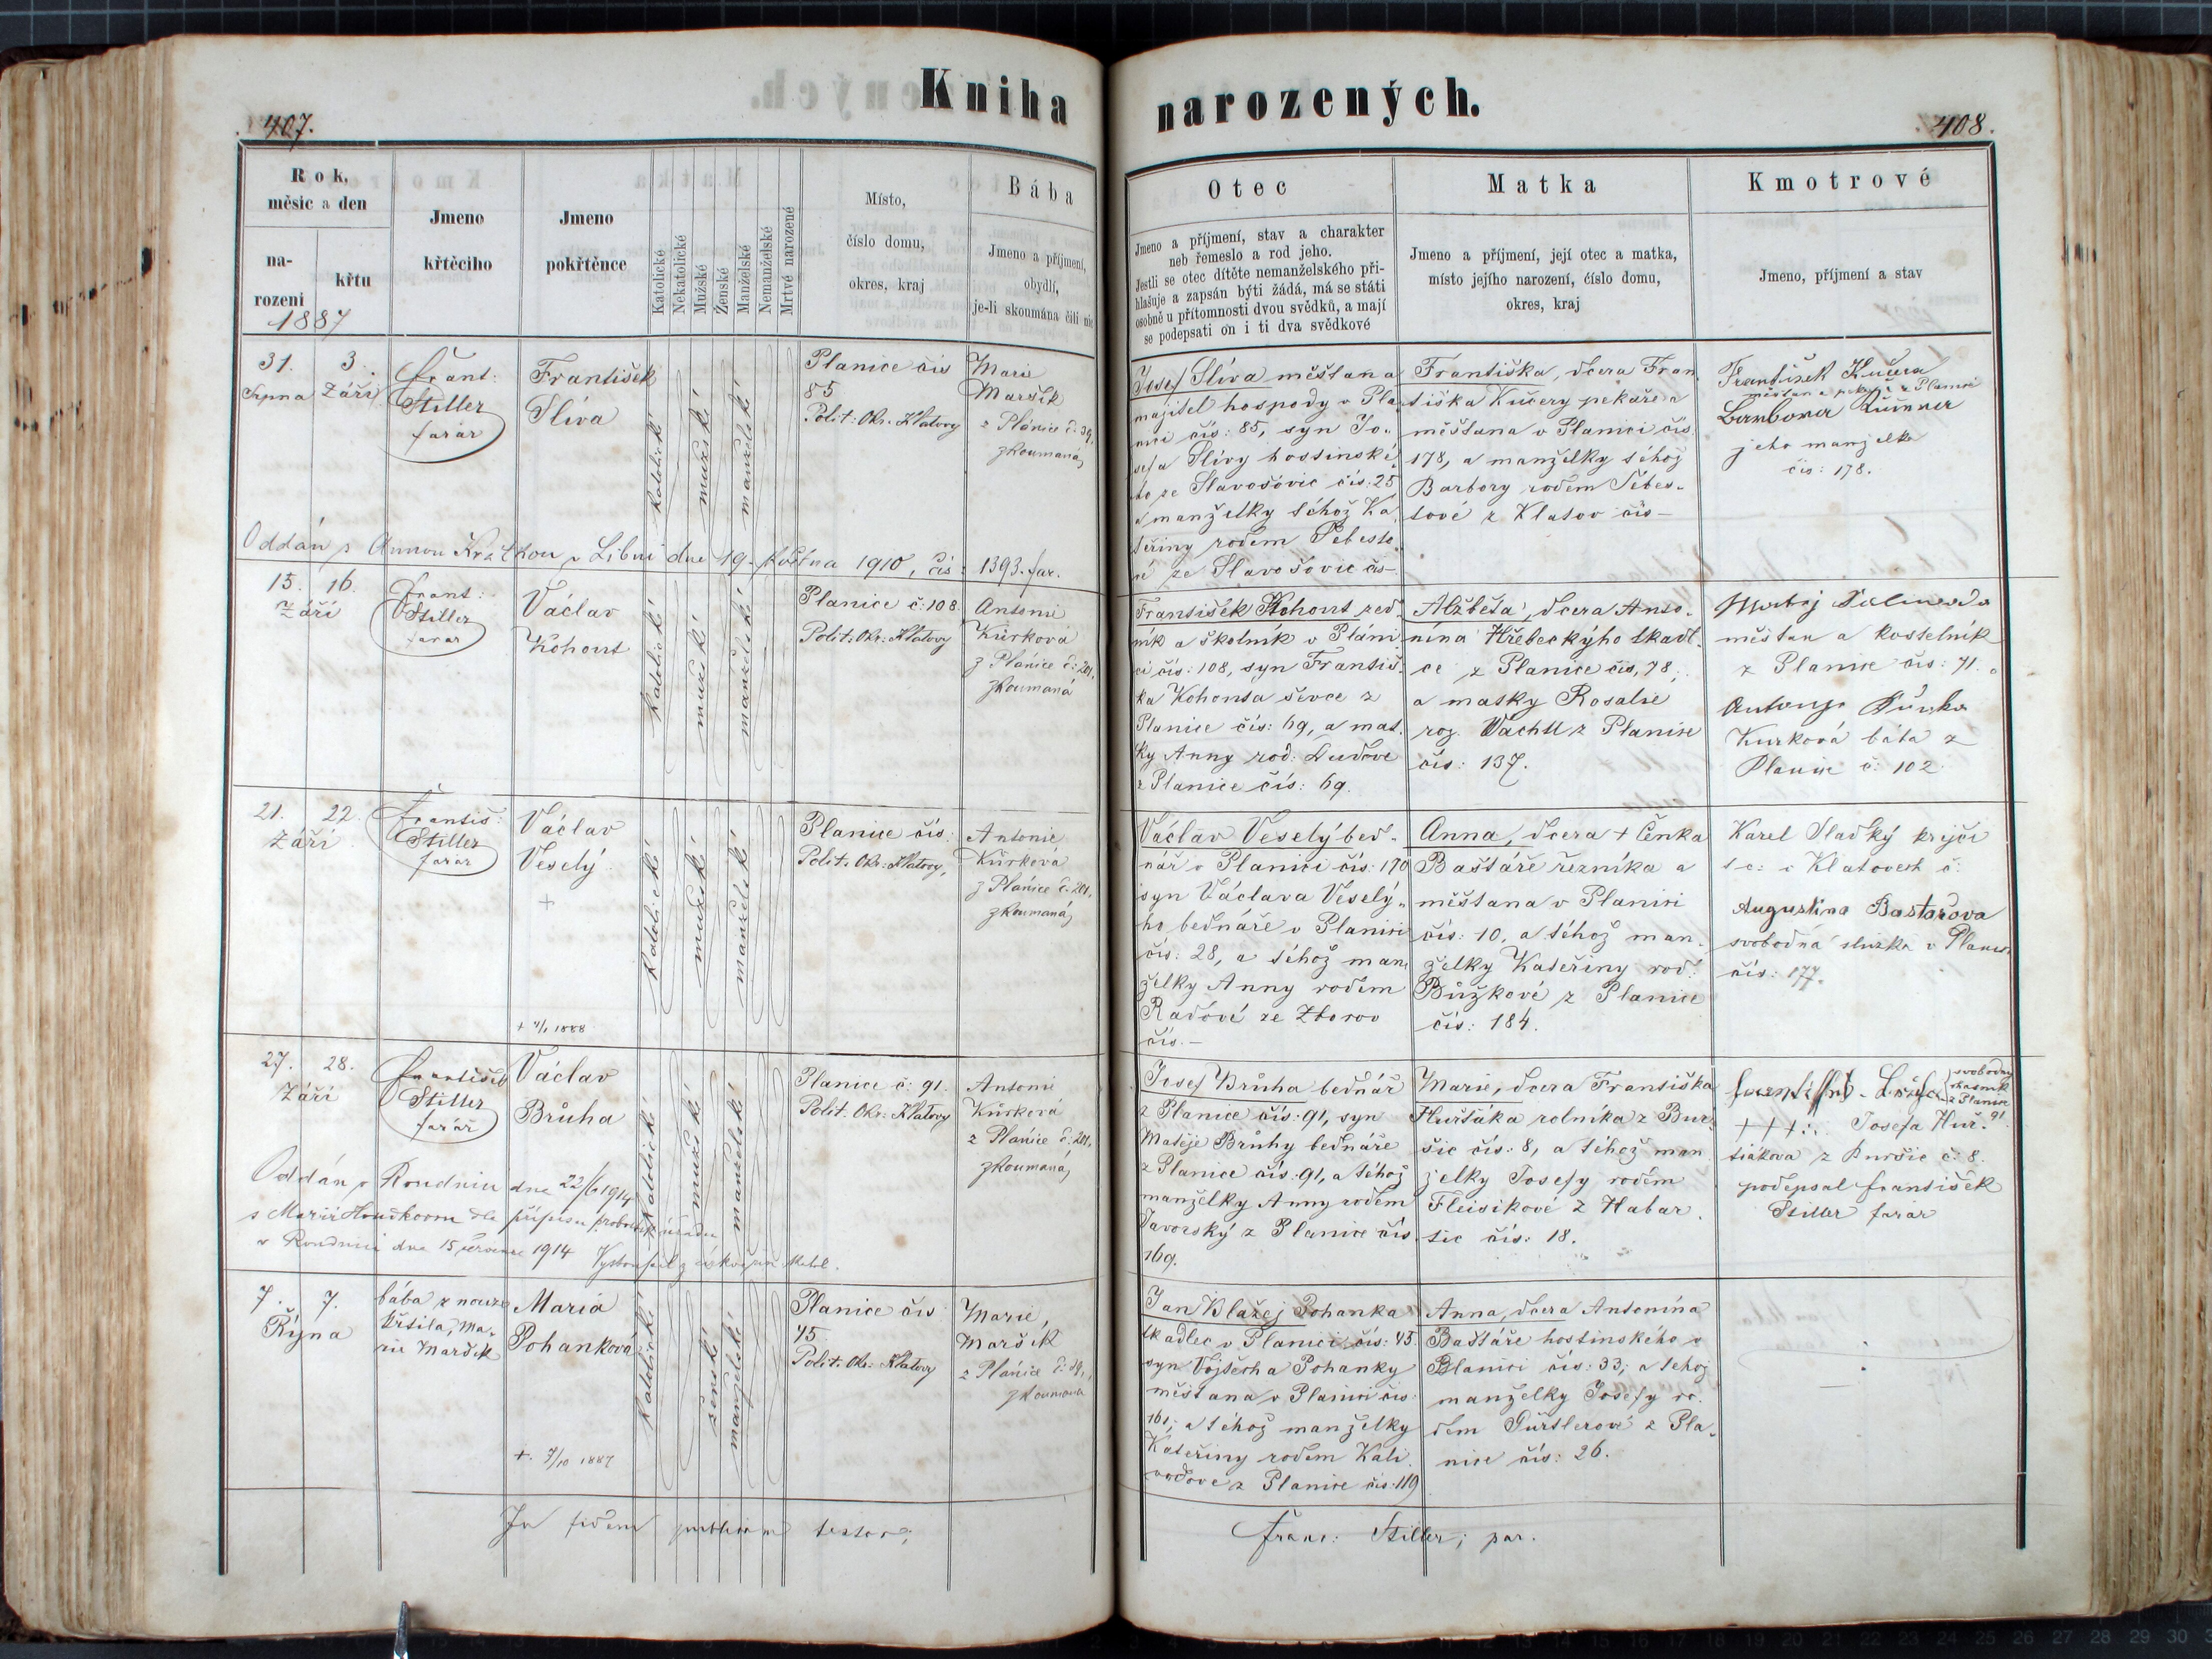 Kniha narozených.
407.
408.
Rok, měsíc a den
na-
rozeni
křtu
1887
Jmeno
křtěciho
Jmeno
pokřtěnce
Katolické
Nekatolické
Mužské
Ženské
Manželské
Nemanželské
Mrtvé narozené
Místo,
číslo domu,
okres, kraj
Bába
Jmeno a příjmení,
obydlí,
je-li skoumána čili nic
Otec
Jmeno a příjmení, stav a charakter
neb řemeslo a rod jeho.
Jestli se otec dítěte nemanželského při-
hlašuje a zapsán býti žádá, má se státi
osobně u přítomnosti dvou svědků, a mají
se podepsati on i ti dva svědkové
Matka
Jmeno a příjmení, její otec a matka,
místo jejího narození, číslo domu,
okres, kraj
Kmotrové
Jmeno, příjmení a stav
31. 3.
Srpna Září
Frant:
Stiller
farář
František
Slíva
katolické
mužské
manželské
Planice čís
85
Polit: Okr. Klatovy
Marie
Maršík
z Plánice č: 39.
zkoumaná
Josef Slíva měšťan a
majitel hospody v Pla-
nici čís: 85, syn Jo-
sefa Slívy hostinské-
ho ze Slavošovic čís: 25
a manželky téhož Ka-
teřiny rodem Šebesto-
vé ze Slavošovic čís-
Františka, dcera Fran-
tiška Kučery pekaře a
měšťana v Planici čís.
178, a manželky téhož
Barbory rodem Šebes-
tové z Klatov čís-
František Kučera
měšťan a pekař z Planice
Barbora
jeho manželka
čís: 178.
Oddán s Annou v Libni dne 19. května 1910, čís: 1393. far.
15. 16.
Září
Frant:
Stiller
farář
Václav
Kohout
katolické
mužské
manželské
Planice č: 108.
Polit: Okr: Klatovy
Antonie
Kůrková
z Plánice č: 201.
zkoumaná
František Kohout řed-
ník a školník v Pláni-
ci čís: 108, syn Františ-
ka Kohouta ševce z
Planice čís: 69, a mat-
ky Anny rod: Dudove
z Planice čís: 69.
Alžběta, dcera Anto-
nína Hřebeckýho tkadl-
ce z Planice čís, 78;
a matky Rosalie
roz. Wachtl z Planice
čís: 137.
Matěj
měšťan a kostelník
z Planice čís: 71.
Kurková bába z
Planice č: 102.
21. 22.
Září
Františ:
Stiller
farář
Václav
Veselý
+
+ 7/1 1888
katolické
mužské
manželské
Planice čís:
Polit: Okr: Klatovy,
Antonie
Kůrková
z Plánice č: 201.
zkoumaná
Václav Veselý bed-
nář v Planici čís: 170
syn Václava Veselý-
ho bednáře v Planici
čís: 28, a téhož man-
želky Anny rodem
Radové ze Zborov
čís.-
Anna, dcera + Čenka
Baštáře řezníka a
měšťana v Planici
čís: 10, a téhož man-
želky Kateřiny rod:
Bůžkové z Planice
čís: 184.
Karel Sladký krejčí
v Klatovech č:
Augustina Baštařova
svobodná služka v Planici
čís: 177.
27. 28.
Září
František
Stiller
farář
Václav
Brůha
katolické
mužské
manželské
Planice č: 91.
Polit: Okr: Klatovy
Antonie
Kůrková
z Plánice č: 201.
zkoumaná
Josef Brůha bednář
z Planice čís: 91, syn
Matěje Brůhy bednáře
z Planice čís: 91, a téhož
manželky Anny rodem
Javorský z Planice čís
169.
Marie, dcera Františka
Hušťáka rolníka z Bur-
šic čís: 8, a téhož man-
želky Josefy rodem
Fleisikové z Habar-
tic čís: 18.
svobodný
z Planice
91.
+++. Josefa Huš-
ťákova z Buršic č: 8.
podepsal František
Stiller farář
Oddán v Roudnici dne 22/6 1914
s Marií Houdkovou dle přípisu
v Roudnici dne 15 července 1914 Vystoupil z církve
7. 7.
Října
bába z nouze
křtila, Ma-
rie Maršík
Maria
Pohanková
+. 7/10 1887
katolické
ženské
manželské
Planice čís
45.
Polit: Okr: Klatovy
Marie,
Maršík
z Plánice č: 39,
zkoumaná
Jan Blažej Pohanka
tkadlec v Planici čís: 45.
syn Vojtěcha Pohanky
měšťana v Planici čís
161; a téhož manželky
Kateřiny rodem Kali-
vodove z Planice čís: 119
Anna, dcera Antonína
Baštáře hostinského v
Planici čís: 33; a tehož
manželky Josefy ro-
dem Gürtlerové z Pla-
nice čís: 26.
In fidem publicam testor;
Franc: Stiller; par.